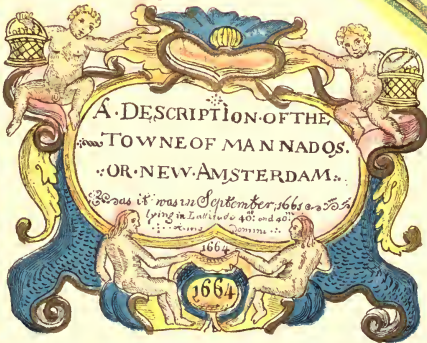 A·DESCRIPTION·OF·THE
TOWNE OF MANNADOS.
·:·OR·NEW·AMSTERDAM:·
as it was in September, 1661
lying in Lattitude 40:de and 40:m
Anno Domini
1664
1664